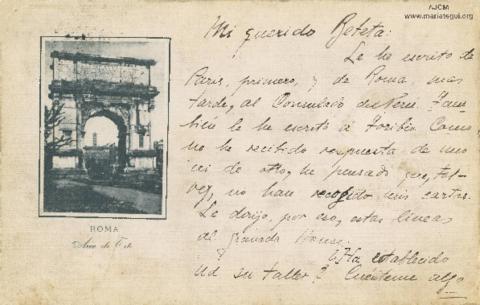 AJCM
www.mariategui.org
Mi querido Beteta:
Le he escrito de
Paris, primero, y de Roma, mas
tarde, al Consulado del Perú. Tam-
bién le he escrito á Toribio
no he recibido respuesta de uno
ni de otro, he pensado que, tal
vez, no han recogido mis cartas.
Le dirijo, por eso, estas lineas
al
¿Ha establecido
Ud su taller? Cuénteme algo
ROMA
Arco di Tito